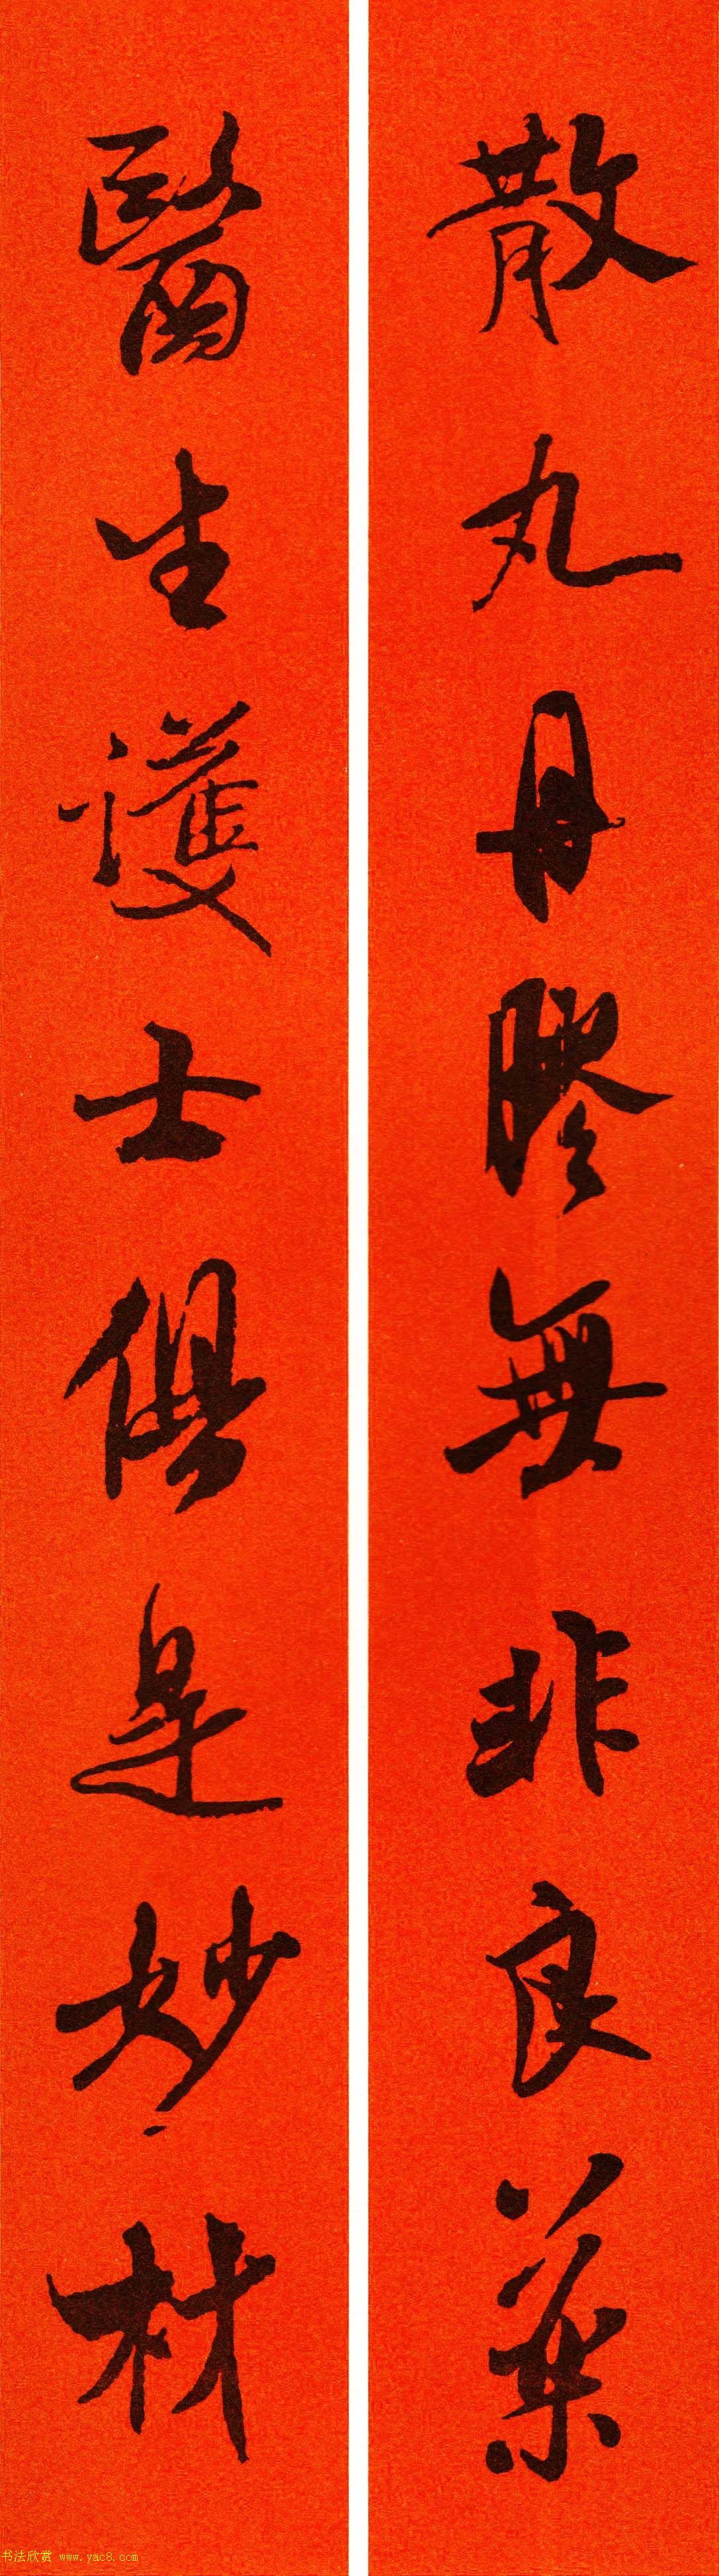 散丸丹膠無非良藥
醫生護士俱是妙材
书法欣赏 www.yac8.com